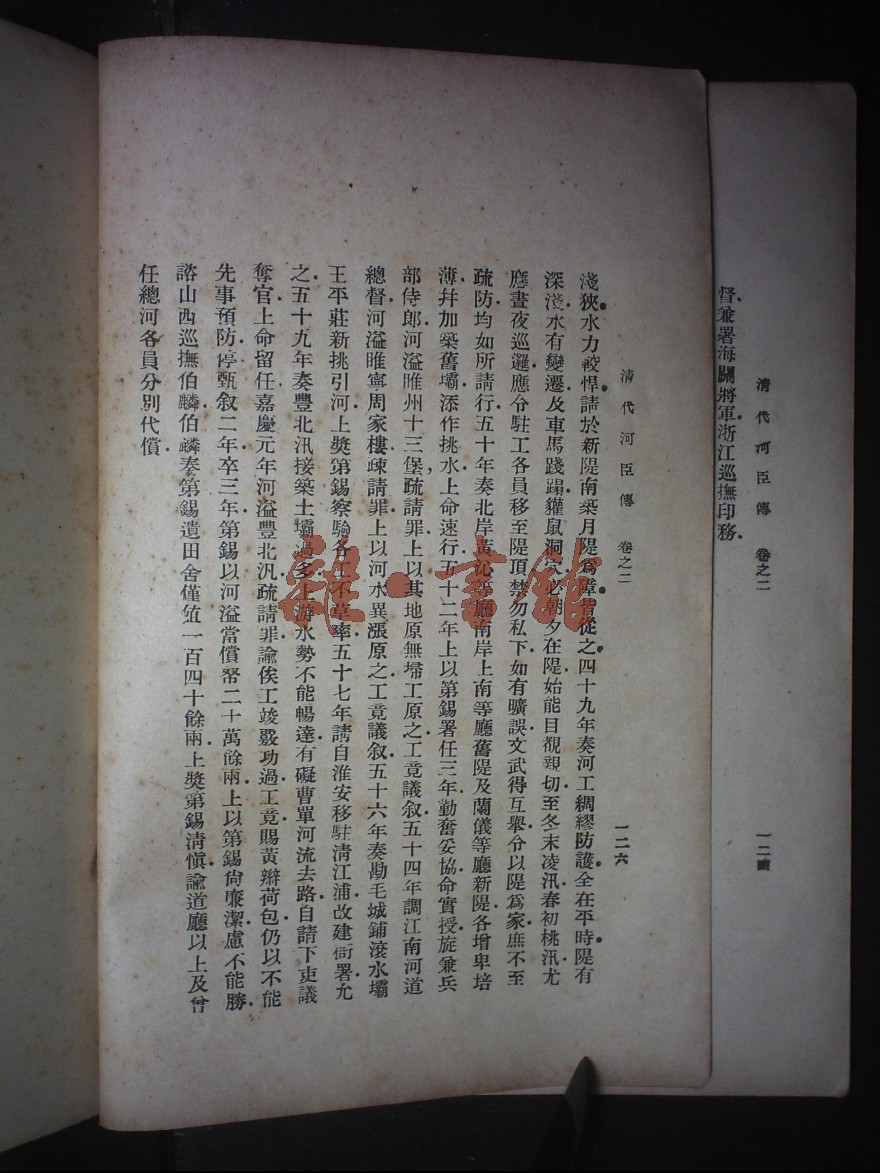 督兼署海關將軍浙江巡撫印務
清代河臣傳 卷之二
一二四
清代河臣傳 卷之二
一二六
淺狹水力較悍請於新隄南築月隄爲障從之四十九年奏河工綢繆防護全在平時隄有
深淺水有變遷及車馬踐蹋貛鼠洞穴必朝夕在隄始能目覩親切至冬末凌汛春初桃汛尤
應晝夜巡邏應令駐工各員移至隄頂禁勿私下如有曠誤文武得互舉令以隄爲家庶不至
疏防均如所請行五十年奏北岸黃沁等廳南岸上南等廳舊隄及蘭儀等廳新隄各增卑培
薄幷加築舊壩添作挑水上命速行五十二年上以第錫署任三年勤奮妥協命實授旋兼兵
部侍郎河溢睢州十三堡疏請罪上以其地原無埽工原之工竟議叙五十四年調江南河道
總督河溢睢寧周家樓疏請罪上以河水異漲原之工竟議叙五十六年奏勘毛城鋪滾水壩
王平莊新挑引河上獎第錫察驗各工不草率五十七年請自淮安移駐清江浦改建衙署允
之五十九年奏豐北汛接築土壩過多上游水勢不能暢達有礙曹單河流去路自請下吏議
奪官上命留任嘉慶元年河溢豐北汛疏請罪諭俟工竣覈功過工竟賜黃辮荷包仍以不能
先事預防停甄叙二年卒三年第錫以河溢當償帑二十萬餘兩上以第錫尙廉潔慮不能勝
諮山西巡撫伯麟伯麟奏第錫遺田舍僅値一百四十餘兩上獎第錫清愼諭道廳以上及曾
任總河各員分別代償
雜書館